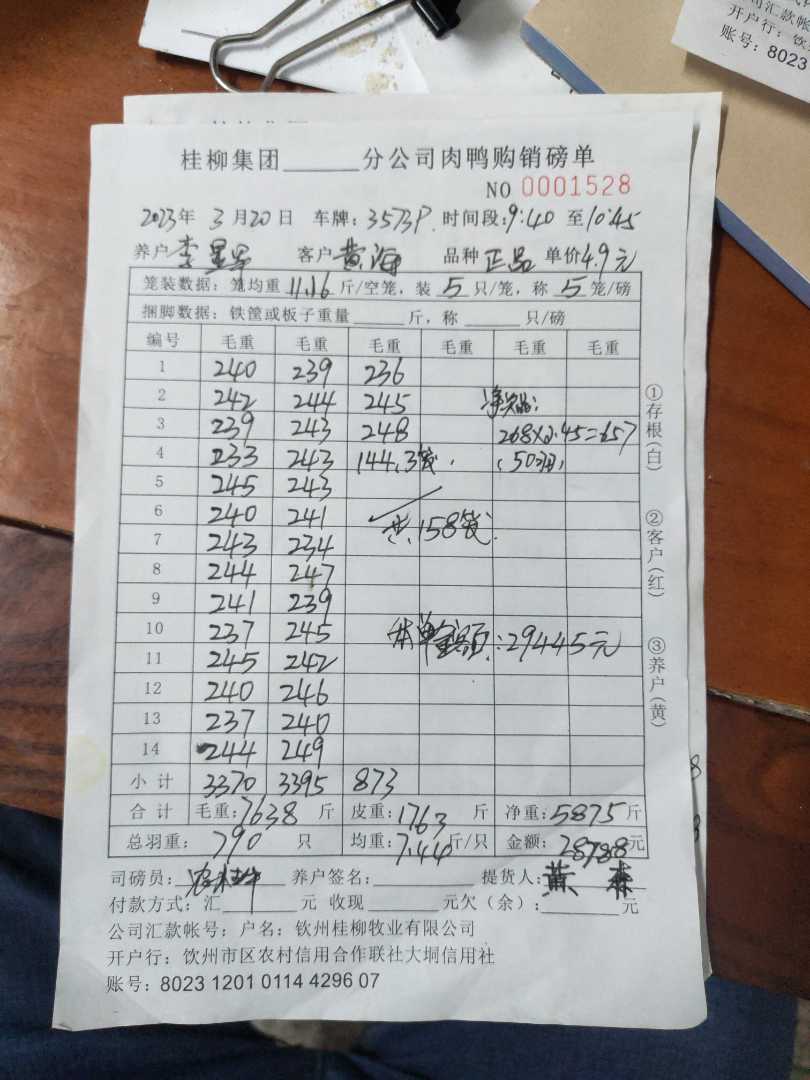 司汇款帐
开户行: 钦
账号: 8023
桂柳集团______分公司肉鸭购销磅单
NO 0001528
2023年 3月20日 车牌: 3573P. 时间段: 9:40 至10:45
养户李 客户黄海 品种 正品 单价4.9元
笼装数据: 笼均重 11.16 斤/空笼, 装 5 只/笼, 称 5 笼/磅
捆脚数据: 铁筐或板子重量______斤, 称______只/磅
编号 毛重 毛重 毛重 毛重 毛重 毛重
1 240 239 236
2 242 244 245
3 239 243 248 268×2.45=657
4 233 243 144.3笼. (50羽)
5 245 243
6 240 241
共158笼
7 243 234
8 244 247
9 241 239
10 237 245 本单金额: 29445元
11 245 242
12 240 246
13 237 240
14 244 249
小计 3370 3395 873
合计 毛重: 7638 斤 皮重: 1763 斤 净重: 5875 斤
总羽重: 790 只 均重: 7.44 斤/只 金额: 28788元
①存根(白)
②客户(红)
③养户(黄)
司磅员: 养户签名:______ 提货人: 黄森
付款方式: 汇______元 收现______元欠(余):______元
公司汇款帐号: 户名: 钦州桂柳牧业有限公司
开户行: 钦州市区农村信用合作联社大垌信用社
账号: 8023 1201 0114 4296 07